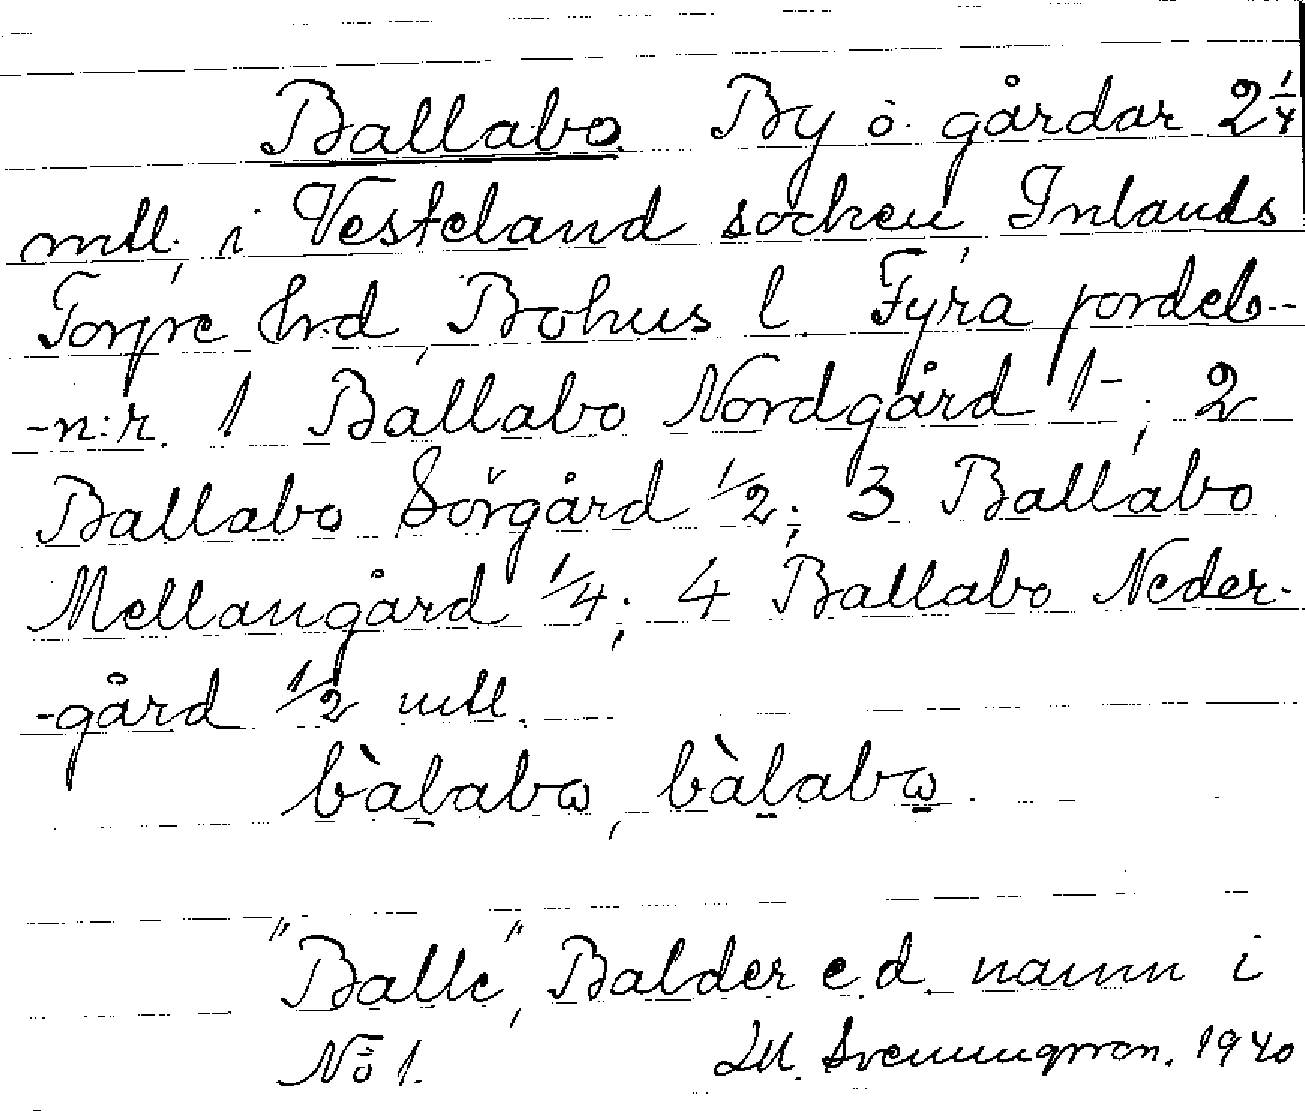 Ballabo. By o. gårdar 2 1/4
mtl. i Vesteland socken, Inlands
Torpe hrd, Bohus l. Fyra jordeb-
-n:r. 1 Ballabo Nordgård 1-; 2
Ballabo Sörgård 1/2; 3 Ballabo
Mellangård 1/4; 4 Ballabo Neder-
-gård 1/2 mtl.
bàlabω, bàlabω.
"Balle", Balder e.d. namn i
No 1. Svenungsson. 1940